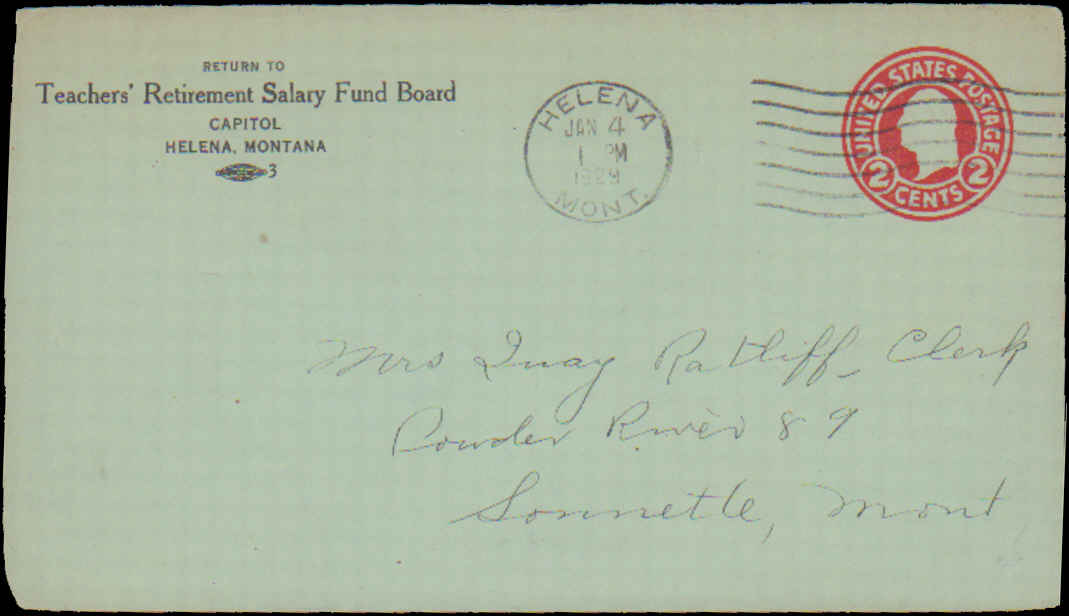 RETURN TO
Teachers' Retirement Salary Fund Board
CAPITOL
HELENA, MONTANA
3
HELENA
JAN 4
1 PM
1929
MONT.
UNITED STATES POSTAGE
2 CENTS 2
Mrs Quay Ratliff, Clerk
Powder River 89
Sonnette, Mont